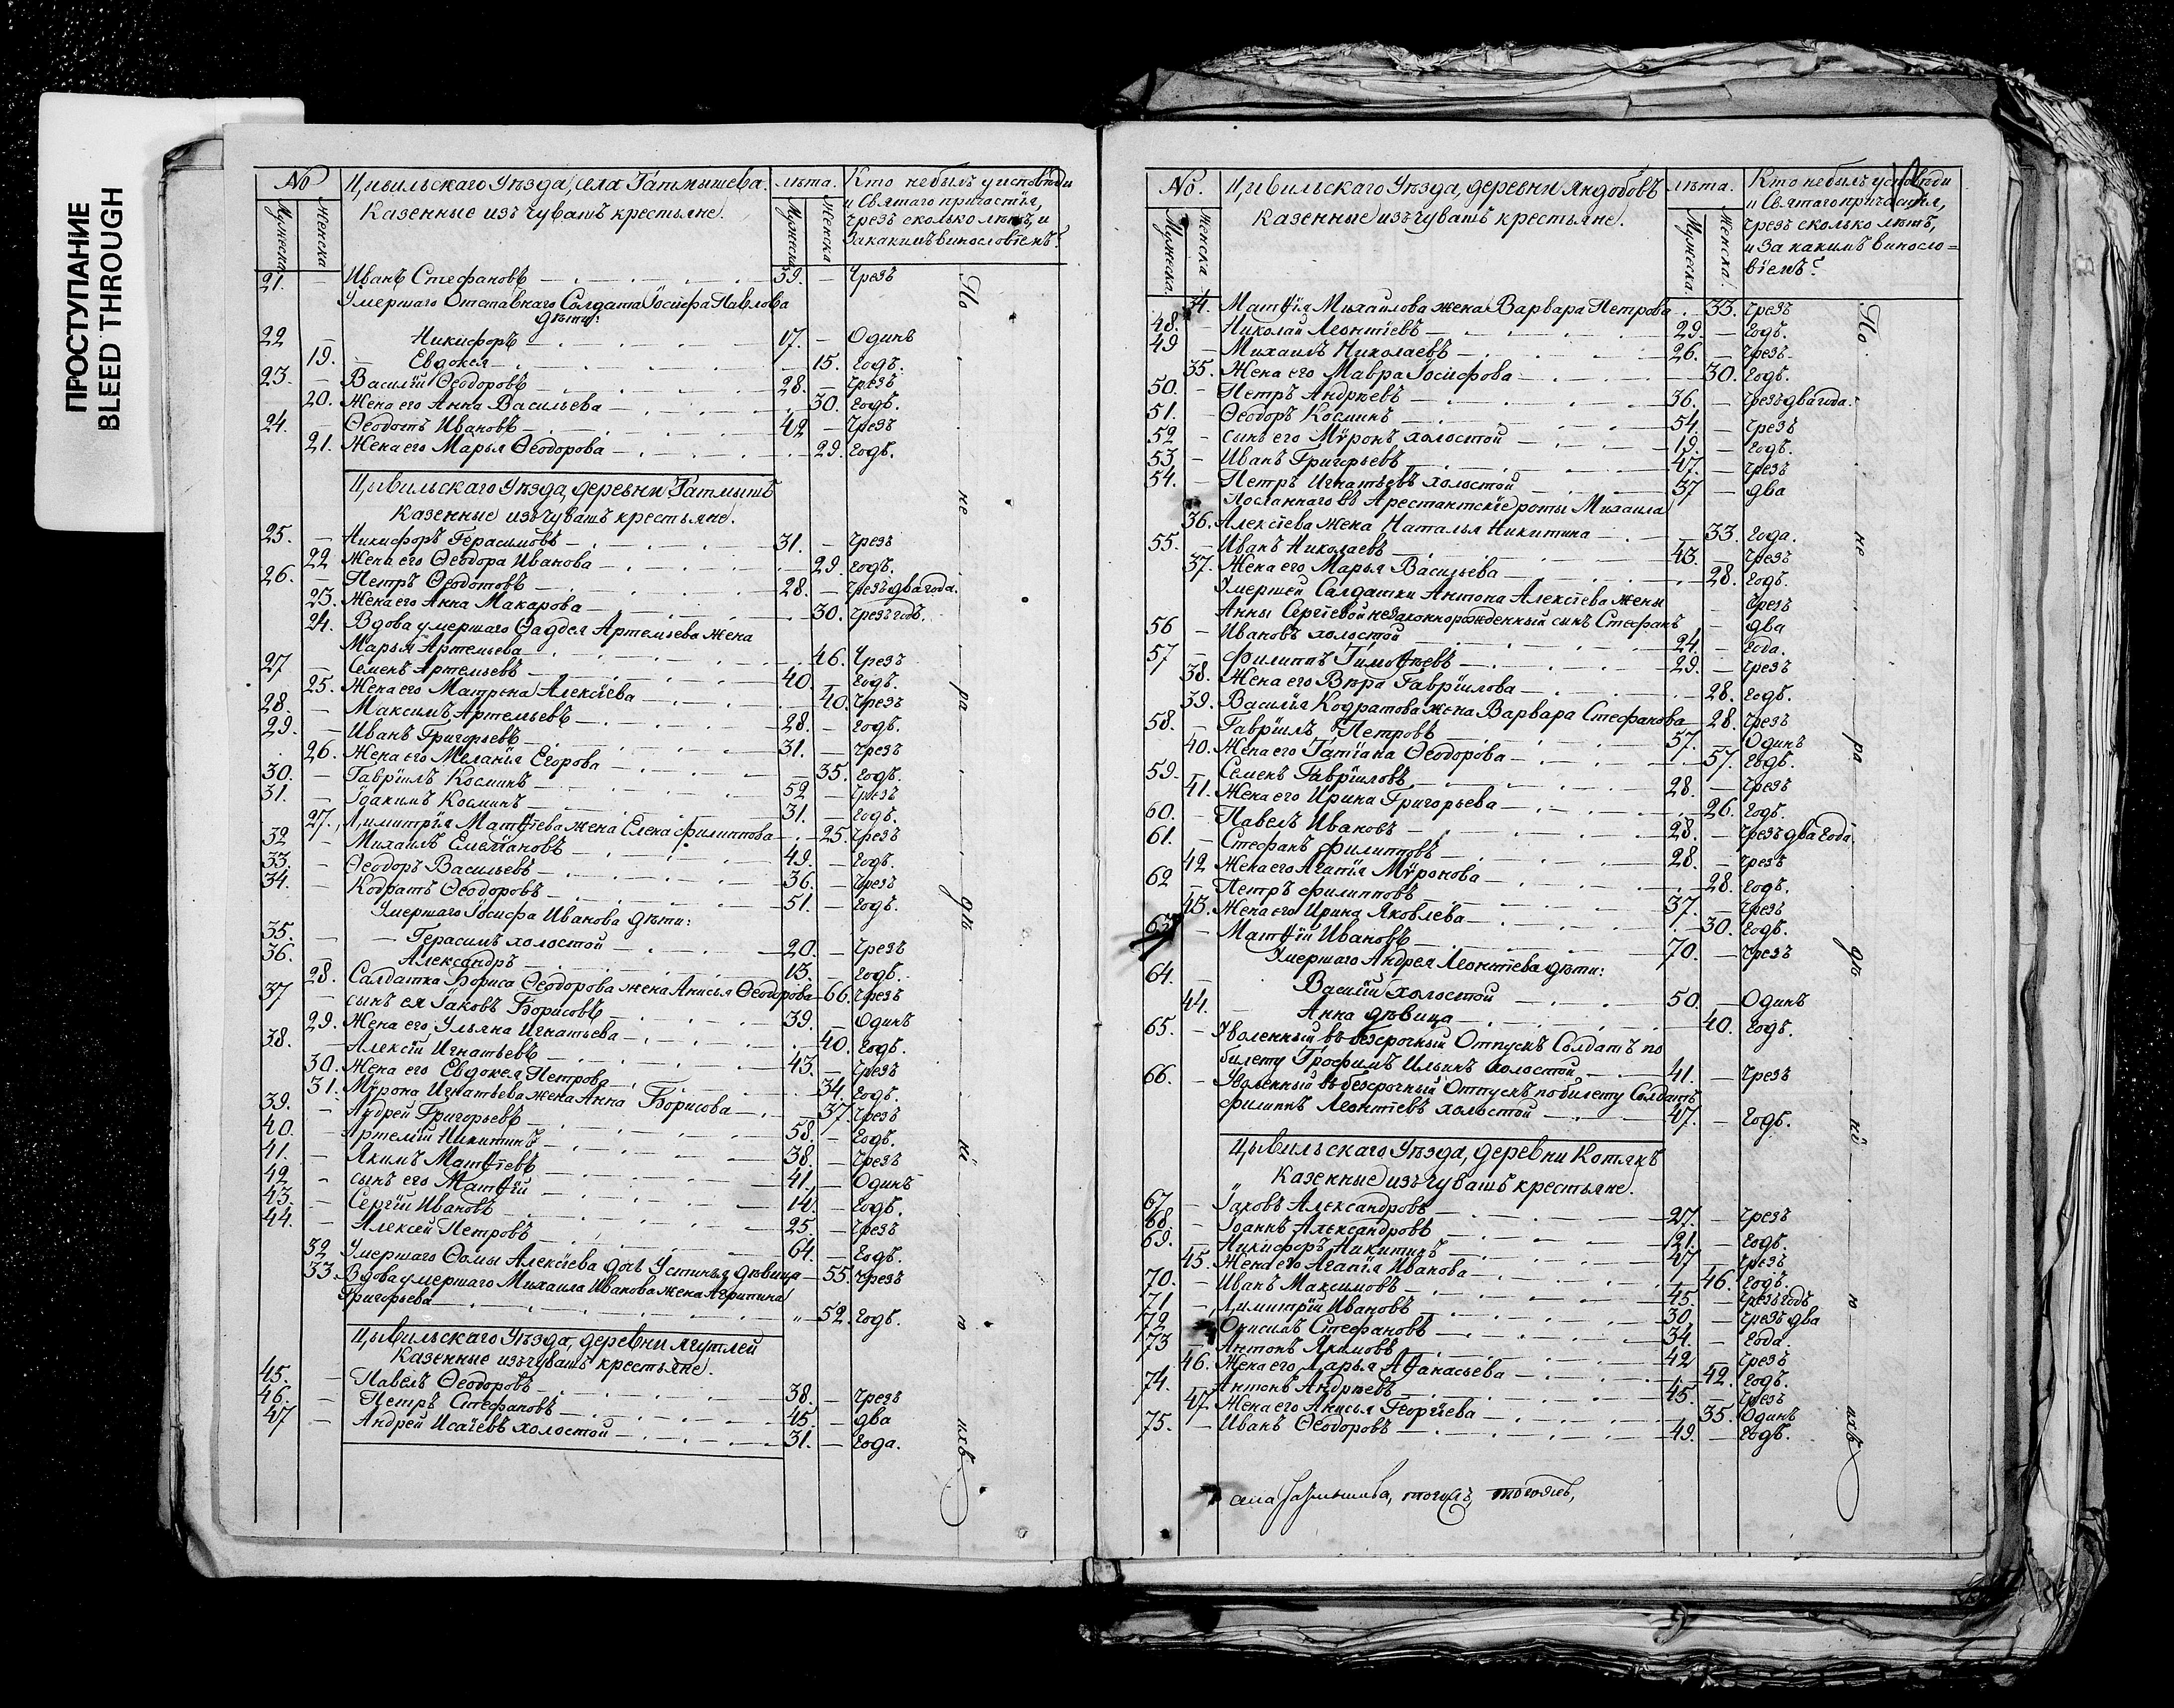 ПРОСТУПАНИЕ
BLEED THROUGH
№ Цывильскаго Уѣзда, села Татмышева. лѣта. Кто небылъ уисповѣди
Казенные изъ чувашъ крестьяне. и Святаго причастія,
Мужеска Женска Мужеска Женска чрезъ сколько лѣтъ, и
закакимъ винословіемъ?
21. — Иванъ Стефановъ — 59. — Чрезъ
Умершаго Отставнаго Солдата Іосифа Павлова
дѣти:
22 — Никифоръ — 17. — Одинъ
19. — Евдокея — 15. годъ.
23. — Василій Ѳеодоровъ — 28. — чрезъ
20. Жена его Анна Васильева — 30. годъ.
24. — Ѳеодотъ Ивановъ — 42 — чрезъ
21. Жена его Марья Ѳеодорова — 29. годъ.
Цывильскаго Уѣзда, деревни Татмышъ
Казенные изъ чувашъ крестьяне.
25. — Никифоръ Герасимовъ — 31. — чрезъ
22 Жена его Ѳеодора Иванова — 29. годъ.
26. — Петръ Ѳеодотовъ — 28. — чрезъ два года.
23. Жена его Анна Макарова — 30. чрезъ годъ.
24. Вдова умершаго Ѳаддея Артемьева жена
Марья Артемьева — 46. Чрезъ
27 — Семенъ Артемьевъ — 40. — годъ.
25. Жена его Матрена Алексіева — 40. чрезъ
28. — Максимъ Артемьевъ — 28. — годъ.
29. — Иванъ Григорьевъ — 31. — чрезъ
26. Жена его Меланія Егорова — 35. годъ.
30. — Гавріилъ Косминъ — 52 — чрезъ
31. — Іоакимъ Косминъ — 31. — годъ.
27. Димитрія Матѳіева жена Елена Филиппова — 25. чрезъ
32 — Михаилъ Емеліановъ — 49. — годъ.
33. — Ѳеодоръ Васильевъ — 36. — чрезъ
34. — Кодратъ Ѳеодоровъ — 51. — годъ.
Умершаго Іосифа Иванова дѣти:
35. — Герасимъ холостой — 20. — чрезъ
36. — Александръ — 15. — годъ.
28. Салдатка Бориса Ѳеодорова жена Анисья Ѳеодорова — 66. чрезъ
37 — сынъ ея Іаковъ Борисовъ — 39. — Одинъ
29. Жена его, Ульяна Игнатьева — 40. годъ.
38. — Алексій Игнатьевъ — 43. — чрезъ
30. Жена его Евдокея Петрова — 34. годъ.
31. Мѵрона Игнатьева жена Анна Борисова — 37. чрезъ
39. — Андрей Григорьевъ — 58. — годъ.
40. — Артемій Никитинъ — 38. — чрезъ
41. — Якимъ Матѳіевъ — 41. — Одинъ
42 — сынъ его Матѳій — 14. — годъ.
43. — Сергій Ивановъ — 25. — чрезъ
44. — Алексей Петровъ — 64. — годъ.
32 Умершаго Ѳомы Алексіева дочь Устинья дѣвица — 55. чрезъ
33. Вдова умершаго Михаила Иванова жена Агрипина
Григорьева — 52. годъ.
Цывильскаго Уѣзда, деревни Ягутлей
Казенные изъ чувашъ крестьяне.
45. — Павелъ Ѳеодоровъ — 38. — чрезъ
46. — Петръ Стефановъ — 45. — два
47 — Андрей Исаіевъ холостой — 31. — года.
По не ра дѣ ні ю ихъ
№. Цывильскаго Уѣзда, деревни Яндобовъ лѣта. Кто небылъ уисповѣди
Казенные изъ чувашъ крестьяне. и Святаго причастія,
Мужеска. Женска. Мужеска. Женска. чрезъ сколько лѣтъ,
и за какимъ виносло=
віемъ?
34. Матѳія Михаилова жена Варвара Петрова — 33. чрезъ
48. — Николай Леонтіевъ — 29. — годъ.
49 — Михаилъ Николаевъ — 26. — чрезъ
35. Жена его Мавра Іосифова — 30. годъ.
50. — Петръ Андрѣевъ — 36. — чрезъ два года.
51. — Ѳеодоръ Косминъ — 54. — чрезъ
52 — сынъ его Мѵронъ холостой — 19. — годъ.
53. — Иванъ Григорьевъ — 47. — чрезъ
54. — Петръ Игнатьевъ холостой — 37 — два
Посланнаго въ Арестантскіе роты Михаила
36. Алексіева жена Наталья Никитина — 33. года.
55. — Иванъ Николаевъ — 43. — чрезъ
37. Жена его Марья Васильева — 28. годъ.
Умершей Салдатки Антона Алексіева жены — чрезъ
Анны Сергіевой незаконнорожденный сынъ Стефанъ — два
56 — Ивановъ холостой — 24. — года.
57 — Филиппъ Тимоѳеевъ — 29. — чрезъ
38. Жена его Вѣра Гавріилова — 28. годъ.
39. Василія Кодратова жена Варвара Стефанова — 28. чрезъ
58. — Гавріилъ Петровъ — 57. — Одинъ
40. Жена его Татіана Ѳеодорова — 57. годъ.
59. — Семенъ Гавріиловъ — 28. — чрезъ
41. Жена его Ирина Григорьева — 26. годъ.
60. — Павелъ Ивановъ — 28. — чрезъ два года.
61. — Стефанъ Филипповъ — 28. — чрезъ
42 Жена его Агапія Мѵронова — 28. годъ.
62 — Петръ Филипповъ — 37. — чрезъ
43. Жена его Ирина Яковлева — 30. годъ.
63 — Матѳій Ивановъ — 70. — чрезъ
Умершаго Андрея Леонтіева дѣти:
64. — Василій холостой — 50. — Одинъ
44. — Анна дѣвица — 40. годъ.
65. — Уволенный въ безсрочный Отпускъ Солдатъ по
билету Трофимъ Ильинъ холостой — 41. — чрезъ
66. — Уволенный въ безсрочный Отпускъ по билету Солдатъ
Филиппъ Леонтіевъ холостой — 47. — годъ.
Цывильскаго Уѣзда, деревни Котякъ
Казенные изъ чувашъ крестьяне.
67 — Іаковъ Александровъ — 27. — чрезъ
68. — Іоаннъ Александровъ — 21. — годъ.
69. — Никифоръ Никитинъ — 47 — чрезъ
45. Жена его Агапія Иванова — 46. годъ.
70. — Иванъ Максимовъ — 45. — чрезъ годъ
71 — Димитрій Ивановъ — 30. — чрезъ два
72. — Онисимъ Стефановъ — 34. — года.
73 — Антонъ Якимовъ — 42 — чрезъ
46. Жена его Дарья Аѳанасьева — 42. годъ.
74. — Антонъ Андрѣевъ — 45. — чрезъ
47. Жена его Анисья Георгіева — 35. Одинъ
75. — Иванъ Ѳеодоровъ — 49. — годъ.
По не ра дѣ ні ю ихъ